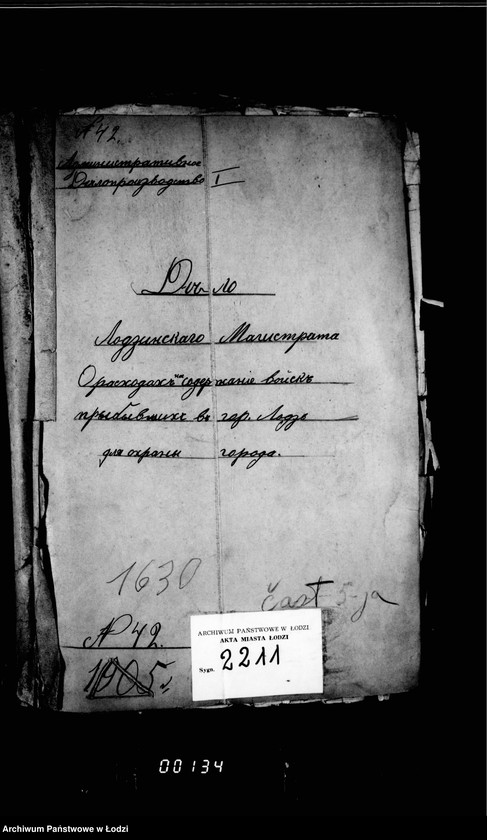 № 42.
Административное
Дѣлопроизводство I
Дѣло
Лодзинскаго Магистрата
О расходахъ на содержаніе войскъ
прыбывшихъ въ гор. Лодзь
для охраны города.
1630
część 5-ja
№ 42.
1905 г.
ARCHIWUM PAŃSTWOWE W ŁODZI
AKTA MIASTA ŁODZI
Sygn. 2211
00134
Archiwum Państwowe w Łodzi